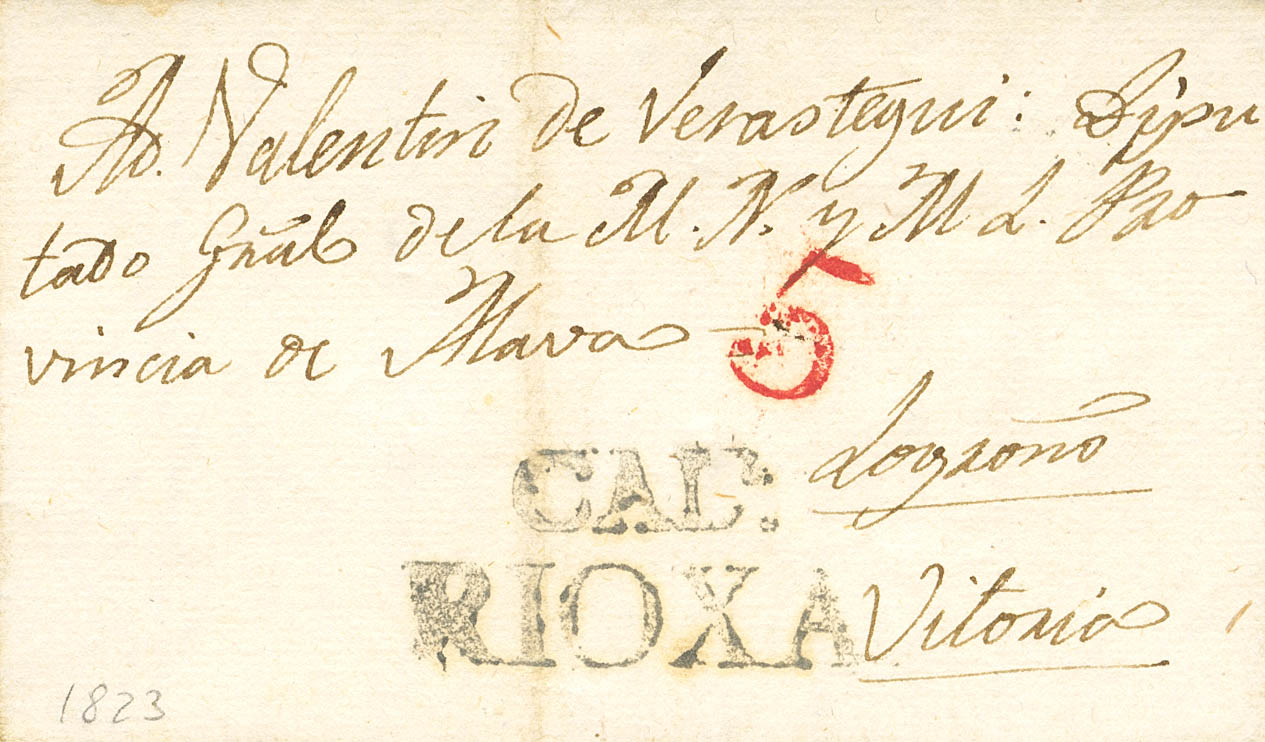 A D. Valentin de Verastegui: Dipu
tado Gñal de la M. N. y M L. Pro
vincia de Alava
5
Logroño
CALD.:
RIOXA
Vitoria
1823